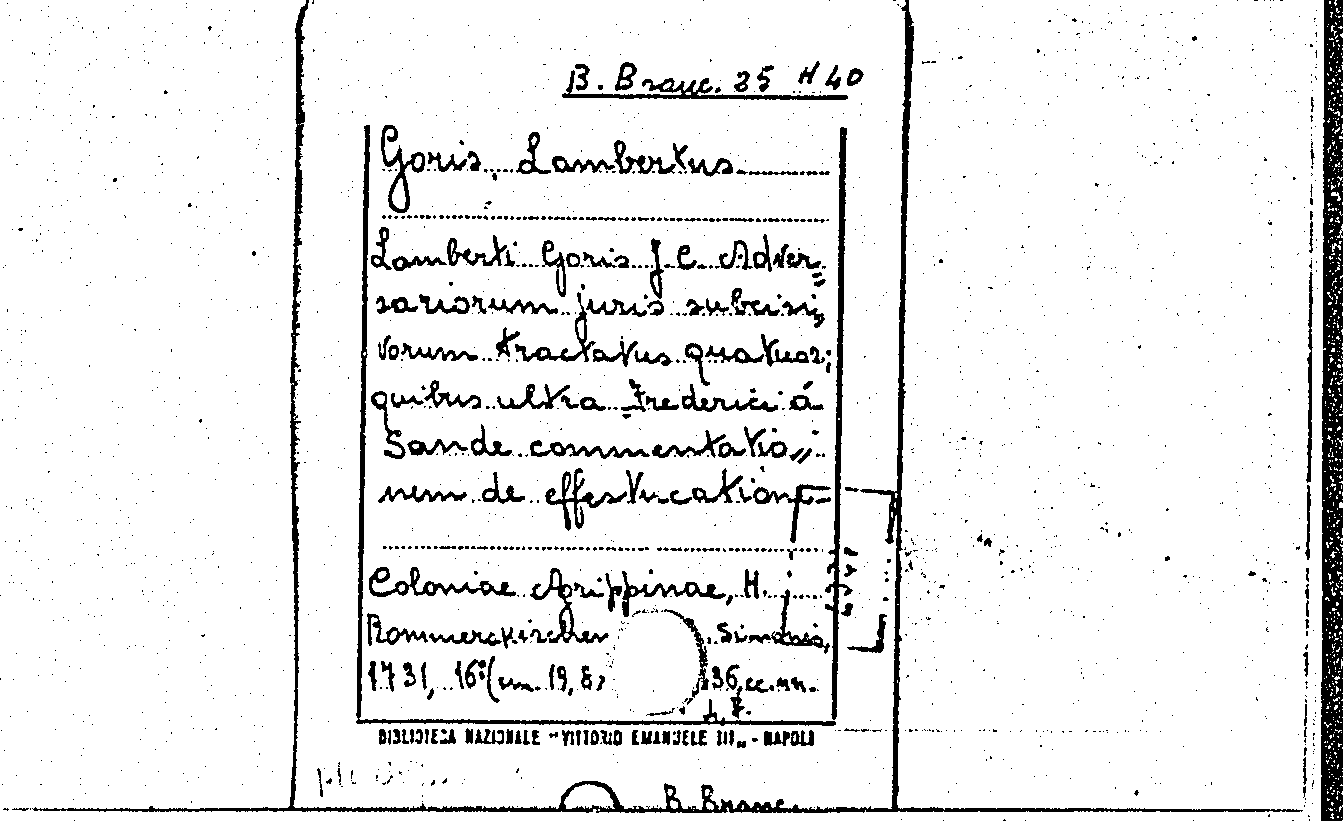 B. Branc. 35 H 40
Goris, Lambertus
Lamberti Goris J C. Adver=
sariorum juris subcisi,,
vorum tractatus quatuor;
quibus ultra Frederici á
Sande commentatio,,
nem de effestucatione
Coloniae Agrippinae, H.
Rommerskirchen Simonis,
1731, 16°(cm. 19,8) 36, cc. nn.
BIBLIOTECA NAZIONALE "VITTORIO EMANUELE III„ - NAPOLI
B. Branc.